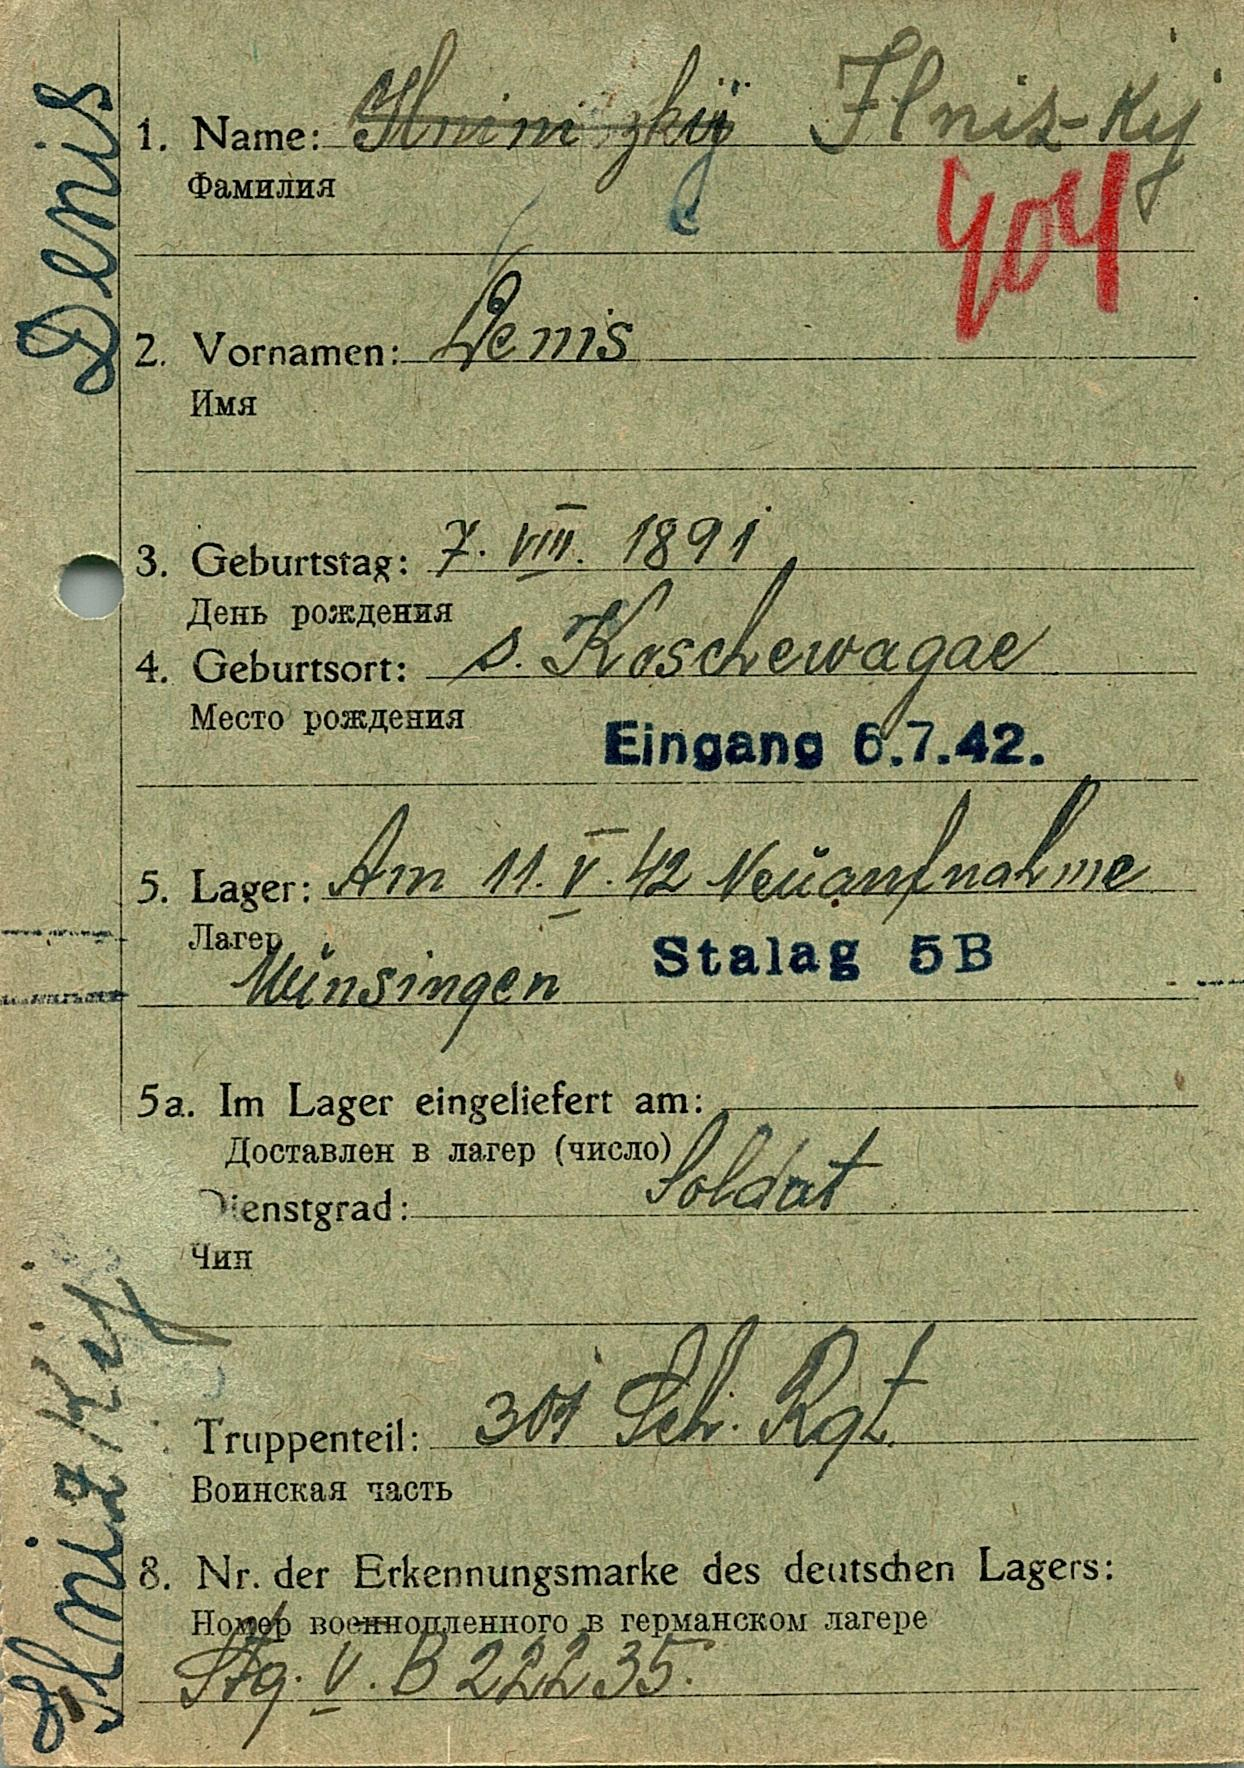 Denis
Ilnizkij
1. Name: Ilnizkij
Фамилия
404
2. Vornamen: Denis
Имя
3. Geburtstag: 7. VIII. 1891
День рождения
4. Geburtsort: s. Koschewagae
Место рождения
Eingang 6.7.42.
5. Lager: Am 11. V. 42 Neuaufnahme
Лагер
Münsingen Stalag 5B
5a. Im Lager eingeliefert am:
Доставлен в лагер (число)
Dienstgrad: Soldat
Чин
Truppenteil: 301 Sch. Rgt.
Воинская часть
8. Nr. der Erkennungsmarke des deutschen Lagers:
Номер военнопленного в германском лагере
Stg. V. B 22235.